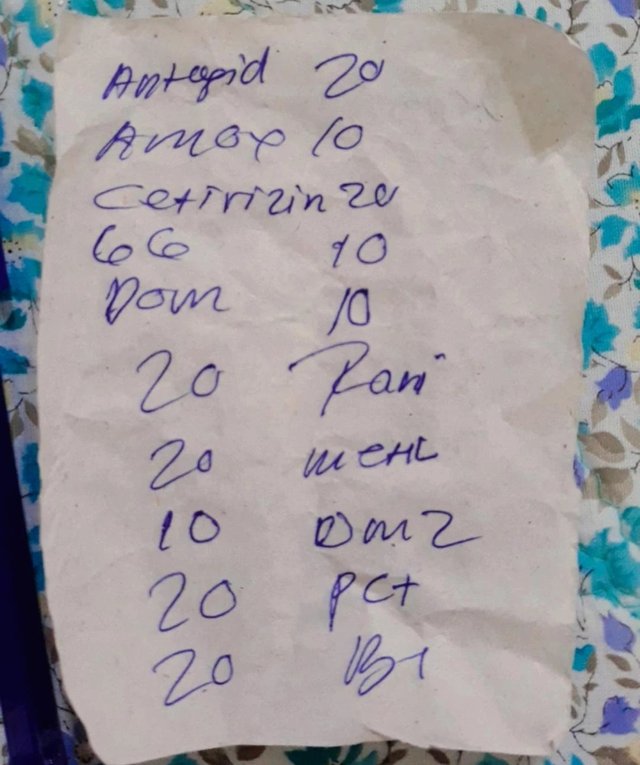 Antasid 20
Amox 10
Cetirizin 20
GG 10
Dom 10
20 Rani
20
10
20 PCT
20 B1